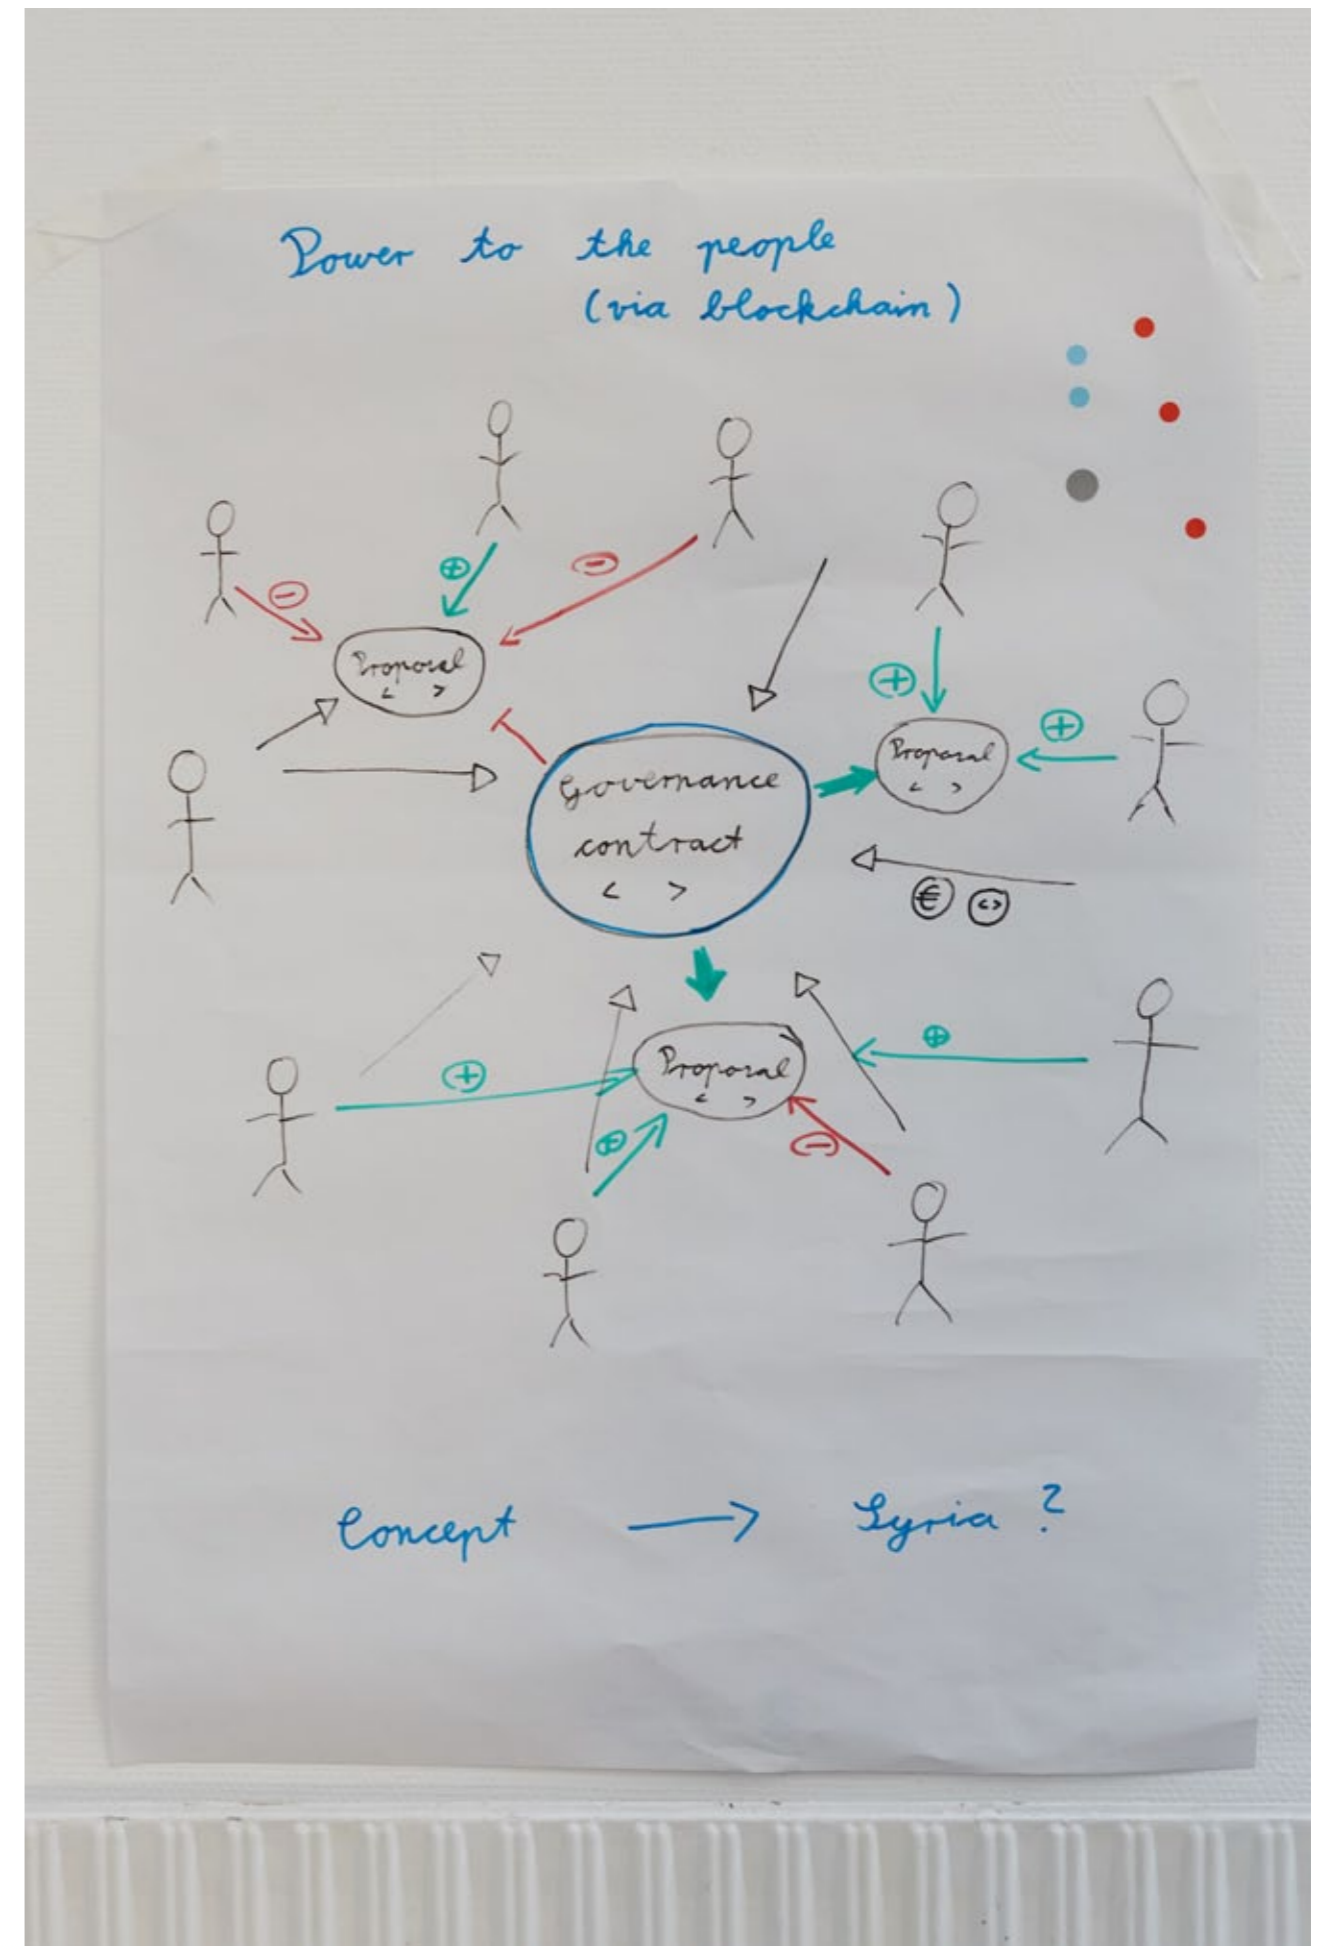 Power to the people
(via blockchain)
⊕
⊖
⊖
Proposal
< >
⊕
⊕
Proposal
< >
Governance
contract
< >
€ <>
⊕
⊕
Proposal
< >
⊕
⊖
Concept → Syria ?